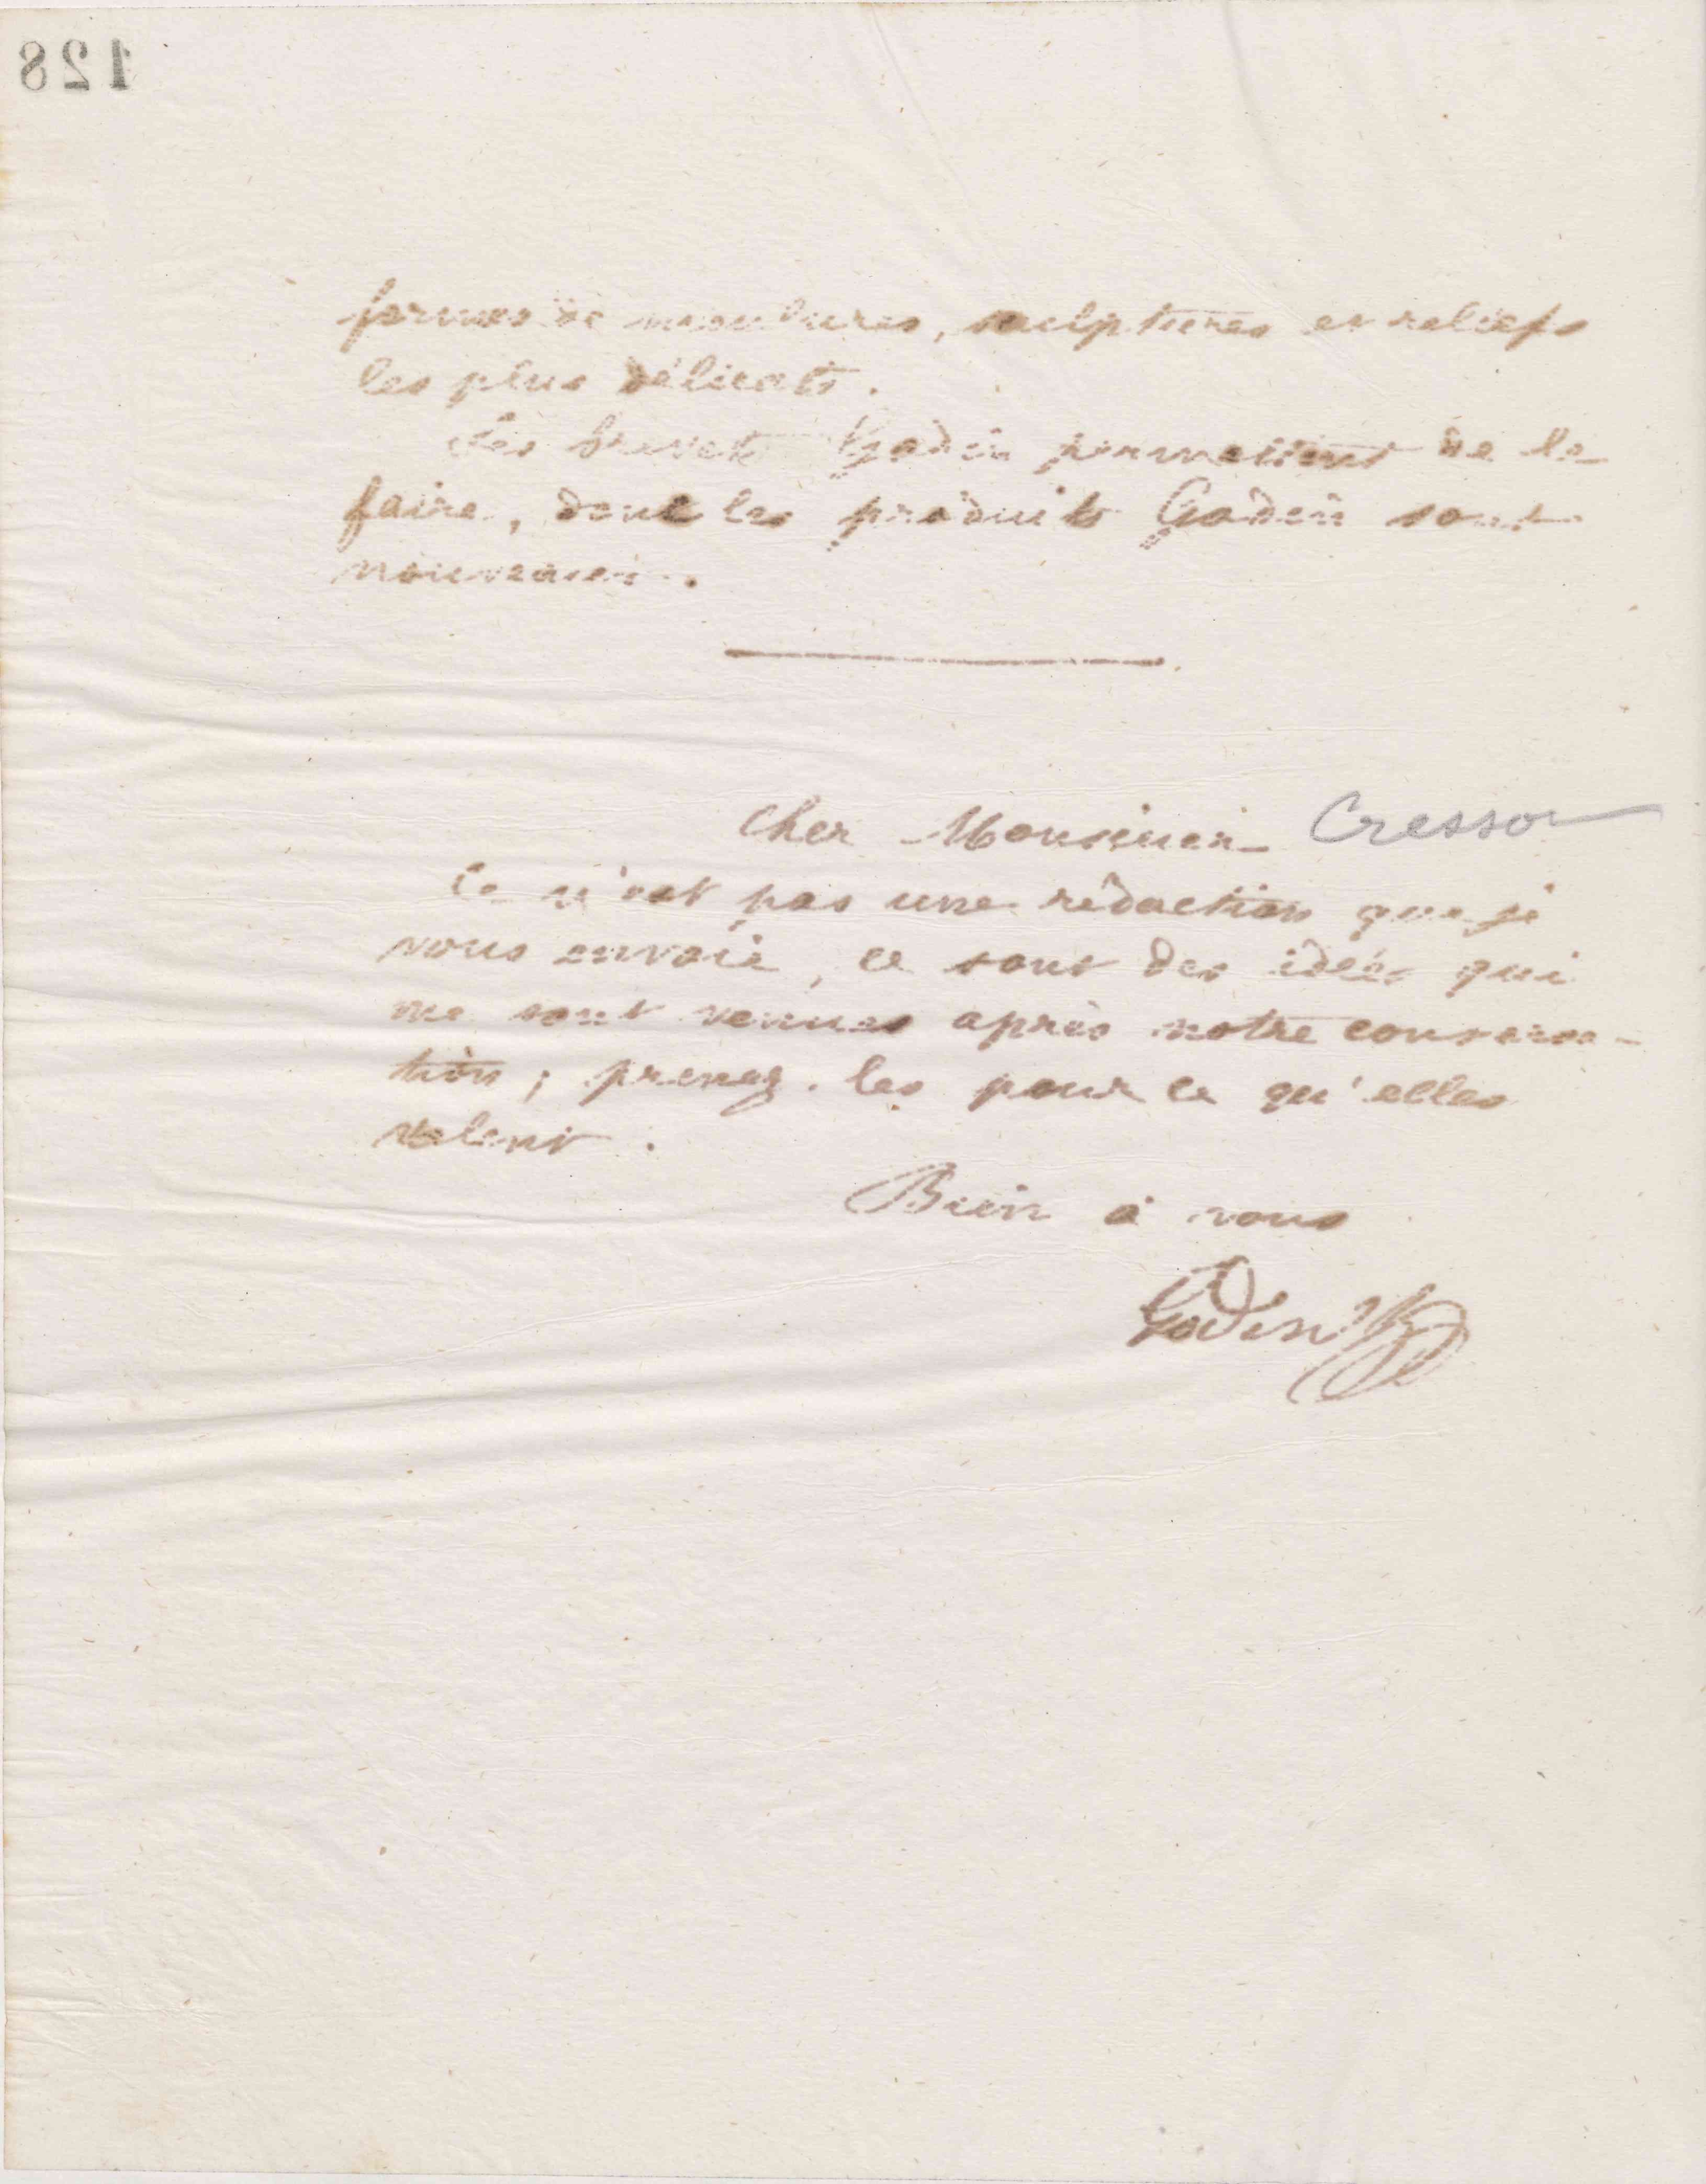 128
formes de moulures, sculptures et reliefs
les plus délicats.
Les brevets Godin permettent de le
faire, donc les produits Godin sont
nouveaux.
Cher Monsieur Cresson
Ce n'est pas une rédaction que je
vous envoie, ce sont des idées qui
me sont venues après notre conversa-
tion ; prenez-les pour ce qu'elles
valent.
Bien à vous
Godin